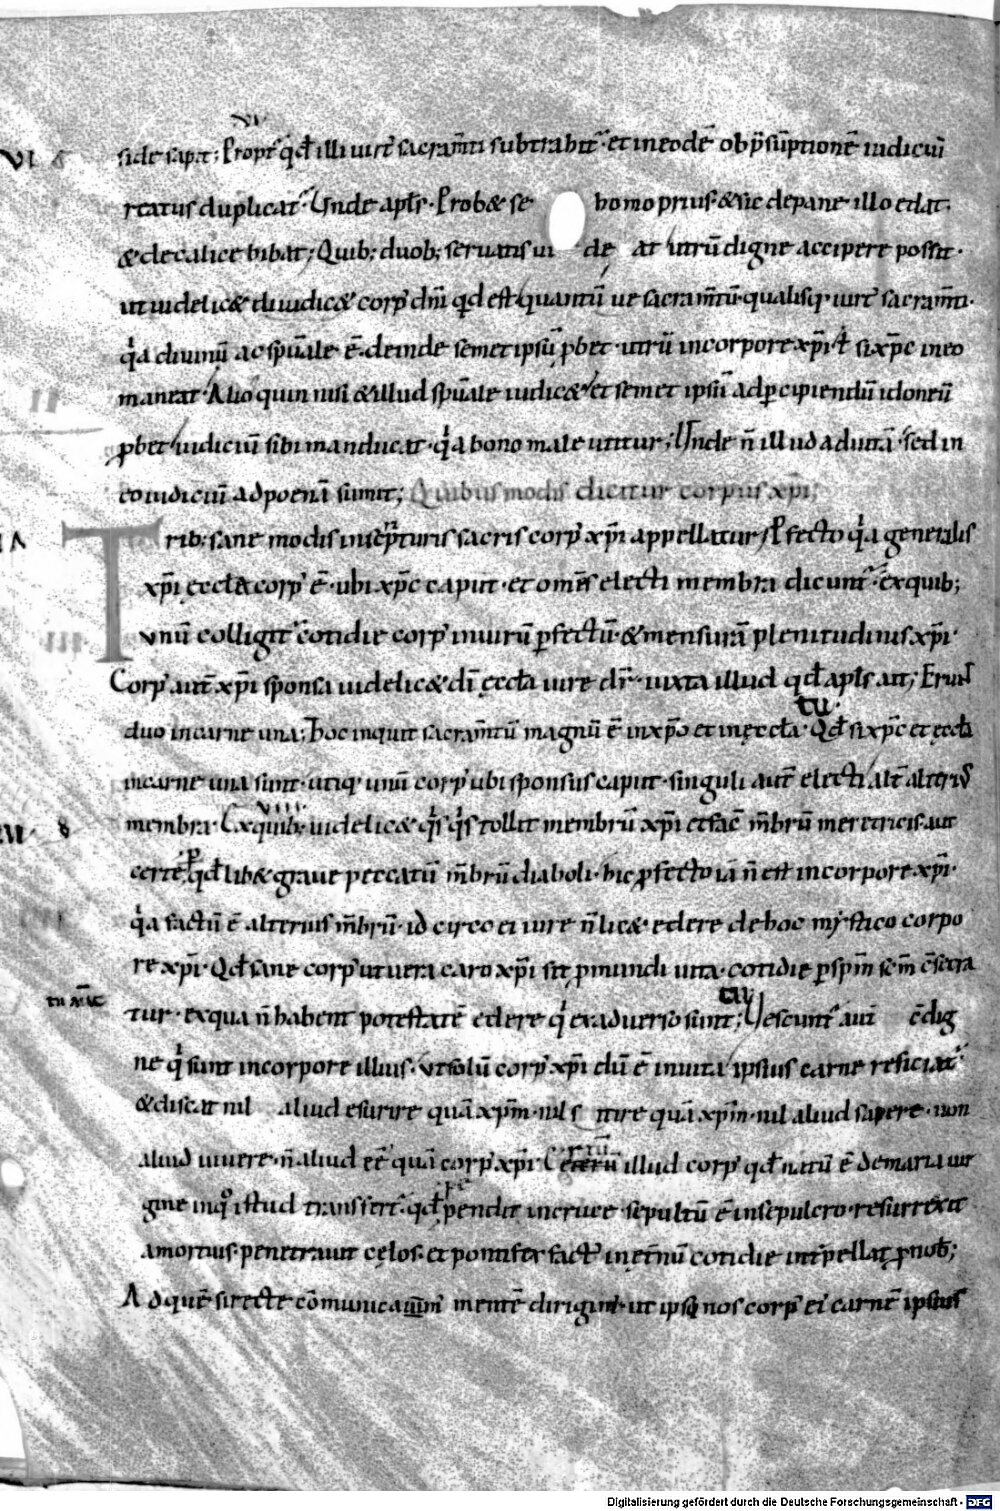 VI
VI
side sapit; Propt̄ qd̄ illi uirt᾽ sacram̄ti subtrahit᷑· et in eodē ob p̄suptionē iudiciū
reatus duplicat᷑ Unde apłs· Prob& se homo prius· & sic de pane illo edat·
& de calice bibat; Quib; duob; seruatis ui de at utrū digne accipere possit·
ut uidelic& diiudic& corp᾽ dn̄i qd̄ est quantū ue sacram̄tū· qualisq; uirt᾽ sacram̄ti·
q̓a diuinū ac spūale ē· deinde semet ipsū p̱bet· utrū in corpore xp̄i ł si xp̄c in eo
maneat· Alioquin nisi & illud spūale iudic& et semet ipsū ad p̱cipiendū idoneū
p̱bet iudiciū sibi manducat· q̓a bono male utitur; Unde n̄ illud ad uitā· sed in
eo iudiciū ad poenā sumit; Quibus modis dicitur corpus xp̄i;
Trib; sane modis in scr̄pturis sacris corp᾽ xp̄i appellatur, P̱fecto q̓a generalis
xp̄i ęccła corp᾽ ē· ubi xp̄c caput· et om̄s electi membra dicunt᷑· ex quib;
unū colligit᷑ cotidie corp᾽ in uirū p̱fectū· & mensurā plenitudinis xp̄i·
Corp᾽ aut̄ xp̄i sponsa uidelic& dī ęccła iure dr̄· iuxta illud qd̄ apłs ait; Erunt
duo in carne una; Hoc inquit sacram̄tū magnū ē in xp̄o et in ęccła· Qd̄ si xp̄c et ęccła
tu·
in carne una sunt· utiq; unū corp᾽ ubi sponsus caput· singuli aut̄ electi alt̄ alterius
VIII·
membra· Ex quib; uidelic& q̓s q̓s tollit membrū xp̄i et fac̄ m̄brū meretricis· aut
certe qd̄ lib& graue peccatū m̄brū diaboli· hic p̱fecto iā n̄ est in corpore xp̄i·
q̓a factū ē alterius m̄brū· id circo ei iure n̄ lic& edere de hoc mystico corpo
re xp̄i· Qd̄ sane corp᾽ ut uera caro xp̄i sit p̱ mundi uita· cotidie p̱ sp̄m sc̄m c̄secra
tur· ex qua n̄ habent potestatē edere q̓ ex aduerso sunt; Uescunt᷑ aut̄ c̄dig
ne q̓ sunt in corpore illius· ut solū corp᾽ xp̄i dū ē in uita ipsius carne reficiat᷑
& discat nil aliud esurire quā xp̄m· nil s ntire quā xp̄m· nil aliud sapere· non
aliud uiuere· n̄ aliud eē quā corp᾽ xp̄i· Ceterū illud corp᾽ qd̄ natū ē de maria uir
gine in q̊ istud transfert᷑· qd̄ pendit in cruce· sepultū ē in sepulcro· resurrexit
a mortuis· penetrauit cęlos· et pontifex fact᾽ in ęt̄nū cotidie int̄pellat p̱ nob̄;
Ad quē si recte cōmunicam᾽ mentē dirigim᾽· ut ipsi nos corp᾽ ei᾽ carnē ipsius